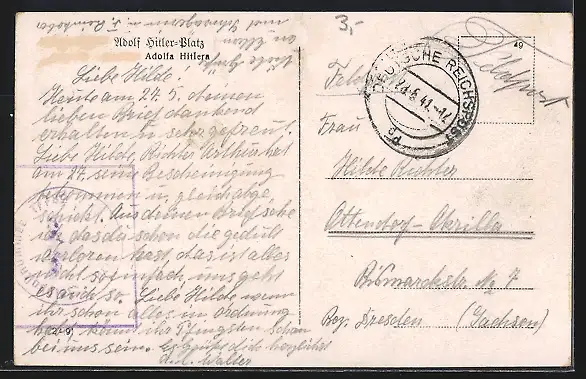 3,-
Adolf Hitler-Platz
Adolfa Hitlera
Liebe Hilde!
Heute am 27. 5. deinen
lieben Brief dankend
erhalten u. sehr gefreut.
Liebe Hilde, Richter Arthur hat
am 27. seine Bescheinigung
bekommen u. gleich abge
schickt. Aus deinen Brief sehe
ich das da schon die geduld
verloren hast, das ist alles
nicht so einfach, uns geht
es auch so. Liebe Hilde wenn
ihr schon alles in Ordnung
könnt ihr Pfingsten schon
bei uns sein. Es grüßt dich herzlichst
Walter
49
Feldpost
DEUTSCHE REICHSPOST
Frau
Hilde Richter
Ottendorf-Okrilla
Bismarckstr. № 7
Bez. Dresden (Sachsen)